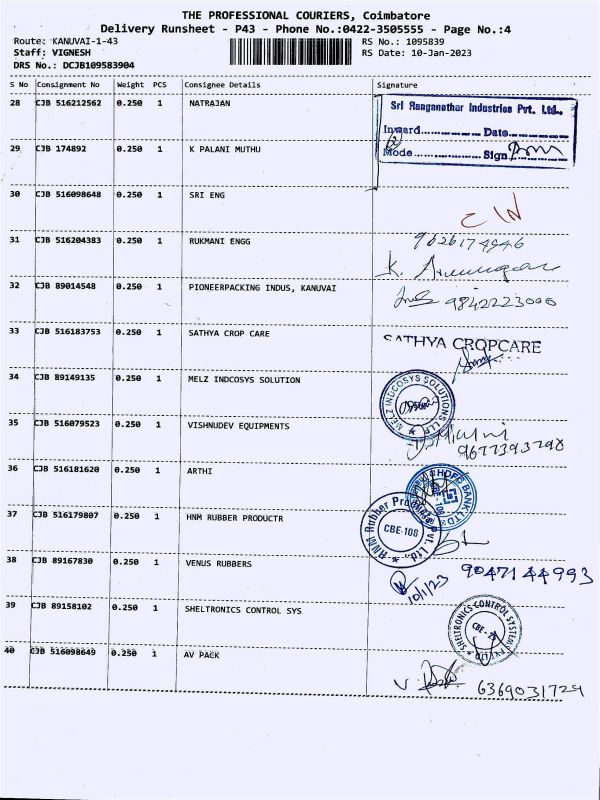 THE PROFESSIONAL COURIERS, Coimbatore
Delivery Runsheet - P43 - Phone No.:0422-3505555 - Page No.:4
Route: KANUVAI-1-43 RS No.: 1095839
Staff: VIGNESH RS Date: 10-Jan-2023
DRS No.: DCJB109583904
S No Consignment No Weight PCS Consignee Details Signature
28 CJB 516212562 0.250 1 NATRAJAN
Sri Ranganathar Industries Pvt. Ltd.,
Inward Date
Mode Sign
29 CJB 174892 0.250 1 K PALANI MUTHU
30 CJB 516098648 0.250 1 SRI ENG
31 CJB 516204383 0.250 1 RUKMANI ENGG 9626174946
32 CJB 89014548 0.250 1 PIONEERPACKING INDUS, KANUVAI 9842223000
33 CJB 516183753 0.250 1 SATHYA CROP CARE SATHYA CROPCARE
34 CJB 89149135 0.250 1 MELZ INDCOSYS SOLUTION MELZ INDCOSYS SOLUTIONS LLP
35 CJB 516079523 0.250 1 VISHNUDEV EQUIPMENTS 9677393798
36 CJB 516181620 0.250 1 ARTHI HDFC BANK LTD
37 CJB 516179807 0.250 1 HNM RUBBER PRODUCTR Rubber Pvt. Ltd CBE-108
38 CJB 89167830 0.250 1 VENUS RUBBERS 10/1/23 9047144993
39 CJB 89158102 0.250 1 SHELTRONICS CONTROL SYS SHELTRONICS CONTROL SYSTEMS PVT LTD
40 CJB 516098649 0.250 1 AV PACK 6369031729